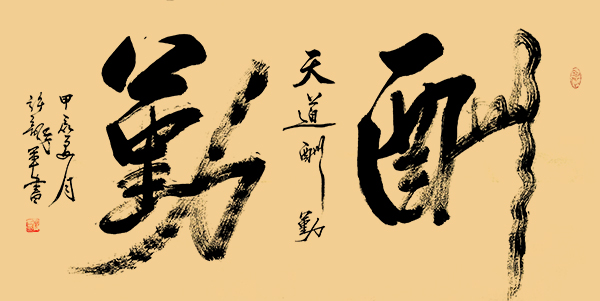 酬
天道酬勤
勤
甲辰夏月
許軍書